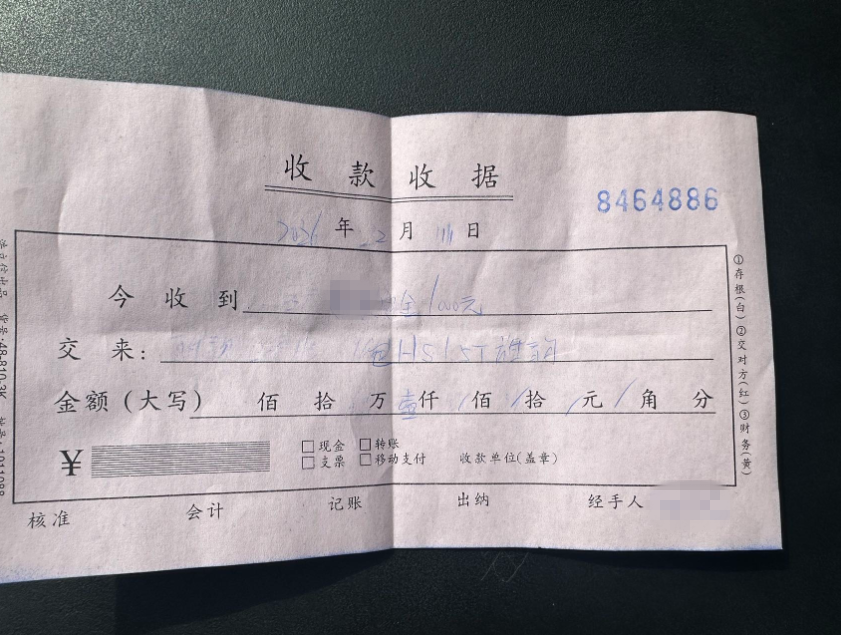 收款收据
8464886
2026年2月 日
今收到 金1000元
交来: HS15T
金额(大写) 佰 拾 万 壹仟 / 佰 / 拾 / 元 / 角 分
¥
□现金 □转账
□支票 □移动支付 收款单位(盖章)
核准 会计 记账 出纳 经手人
①存根(白)②交对方(红)③财务(黄)